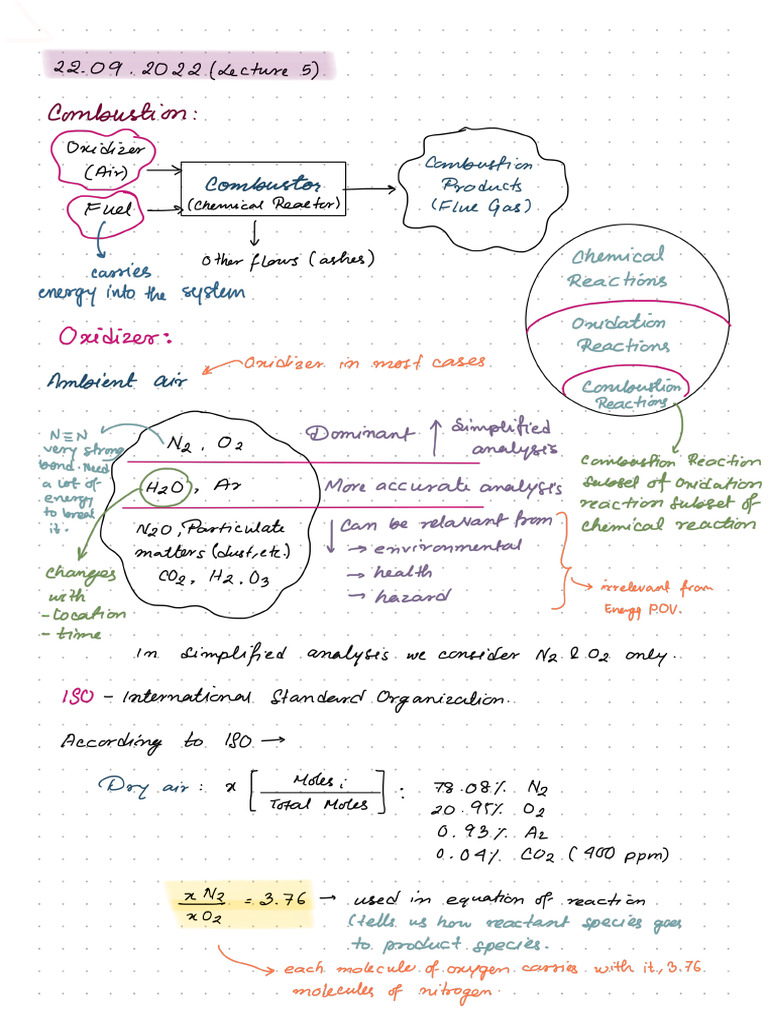 22.09.2022 (Lecture 5)
Combustion:
Oxidizer
(Air)
Fuel
Combustor
(Chemical Reactor)
Combustion
Products
(Flue Gas)
Other flows (ashes)
carries
energy into the system
Chemical
Reactions
Oxidation
Reactions
Combustion
Reactions
Combustion Reaction
Subset of Oxidation
reaction subset of
chemical reaction
Oxidizer:
Ambient air
Oxidizer in most cases
N≡N
very strong
bond. Need
a lot of
energy
to break
it.
N2, O2
H2O, Ar
N2O, Particulate
matters (dust, etc.)
CO2, H2, O3
Dominant ↑ Simplified
analysis
More accurate analysis
↓ Can be relavant from
→ environmental
→ health
→ hazard
→ irrelevant from
Energy P.O.V.
changes
with
- location
- time
In simplified analysis we consider N2 & O2 only.
ISO - International Standard Organization.
According to ISO →
Dry air: x [Moles i / Total Moles] : 78.08% N2
20.95% O2
0.93% Ar
0.04% CO2 (400 ppm)
x N2 / x O2 = 3.76 → used in equation of reaction
(tells us how reactant species goes
to product species.
→ each molecule of oxygen carries with it, 3.76
molecules of nitrogen.